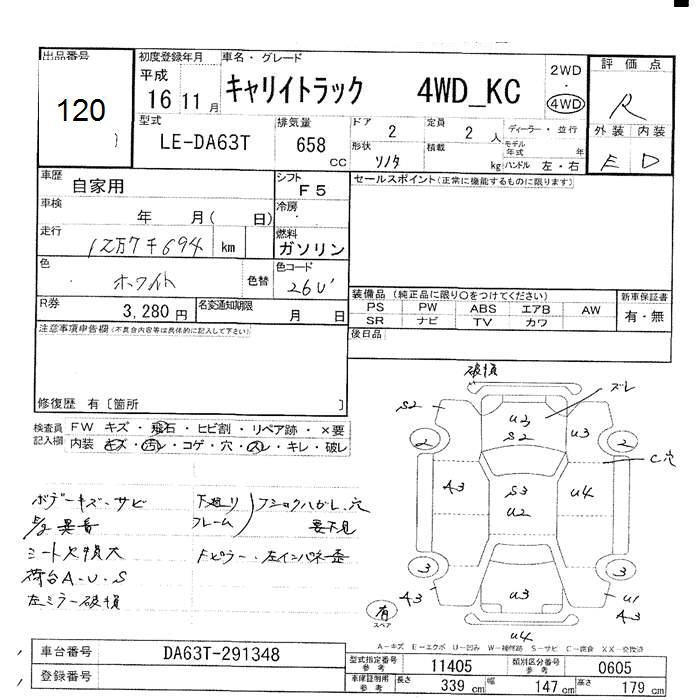 出品番号
120
初度登録年月
平成
16 11 月
車名・グレード
キャリイトラック 4WD_KC
2WD
・
4WD
評価点
R
外装 内装
E D
型式
LE-DA63T
排気量
658
CC
ドア
2
定員
2 人
ディーラー・並行
形状
積載
kg
モデル年式
年
ハンドル 左・右
車歴
自家用
シフト
F5
セールスポイント(正常に機能するものに限ります)
車検
年 月( 日)
冷房
走行
12万7千694 km
燃料
ガソリン
色
ホワイト
色替
色カラーコード
26U
R券
3,280円
名変通知期限
月 日
装備品(純正品に限り○をつけてください)
PS PW ABS エアB AW
SR ナビ TV カワ
新車保証書
有・無
後日品
注意事項申告欄(不具合内容等は具体的に記入して下さい)
修復歴 有[箇所 ]
検査員記入欄
FW キズ・飛石・ヒビ割・リペア跡・×要
内装 キズ・汚レ・コゲ・穴・スレ・キレ・破レ
ボデーキズ・サビ
異音
シート欠損大
荷台A・U・S
左ミラー破損
下廻り
フレーム
フショクハガレ、穴
要下見
Fピラー・左インパネ歪
破損
ズレ
S2
U3
S2
U3
2
2
C穴
A3
S3
U2
U4
3
3
A3
U3
U1
A3
U4
有
スペア
A-キズ E-エクボ U-凹み W-補修跡 S-サビ C-腐食 XX-交換済
車台番号
DA63T-291348
登録番号
型式指定番号
参考
11405
類別区分番号
参考
0605
車庫証明用
参考
長さ 339 cm 幅 147 cm 高さ 179 cm